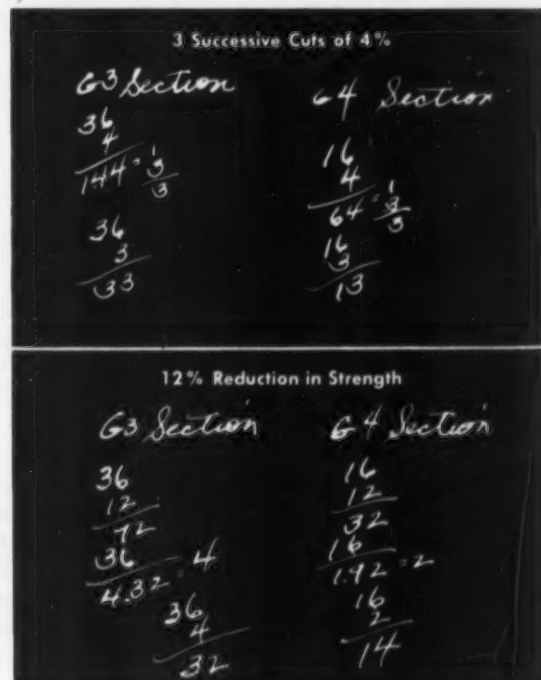 3 Successive Cuts of 4%
G3 Section
36
4
144 = 1
3
3
36
3
33
G4 Section
16
4
64 = 1
3
3
16
3
13
12% Reduction in Strength
G3 Section
36
12
72
36
4.32 = 4
36
4
32
G4 Section
16
12
32
16
1.92 = 2
16
2
14